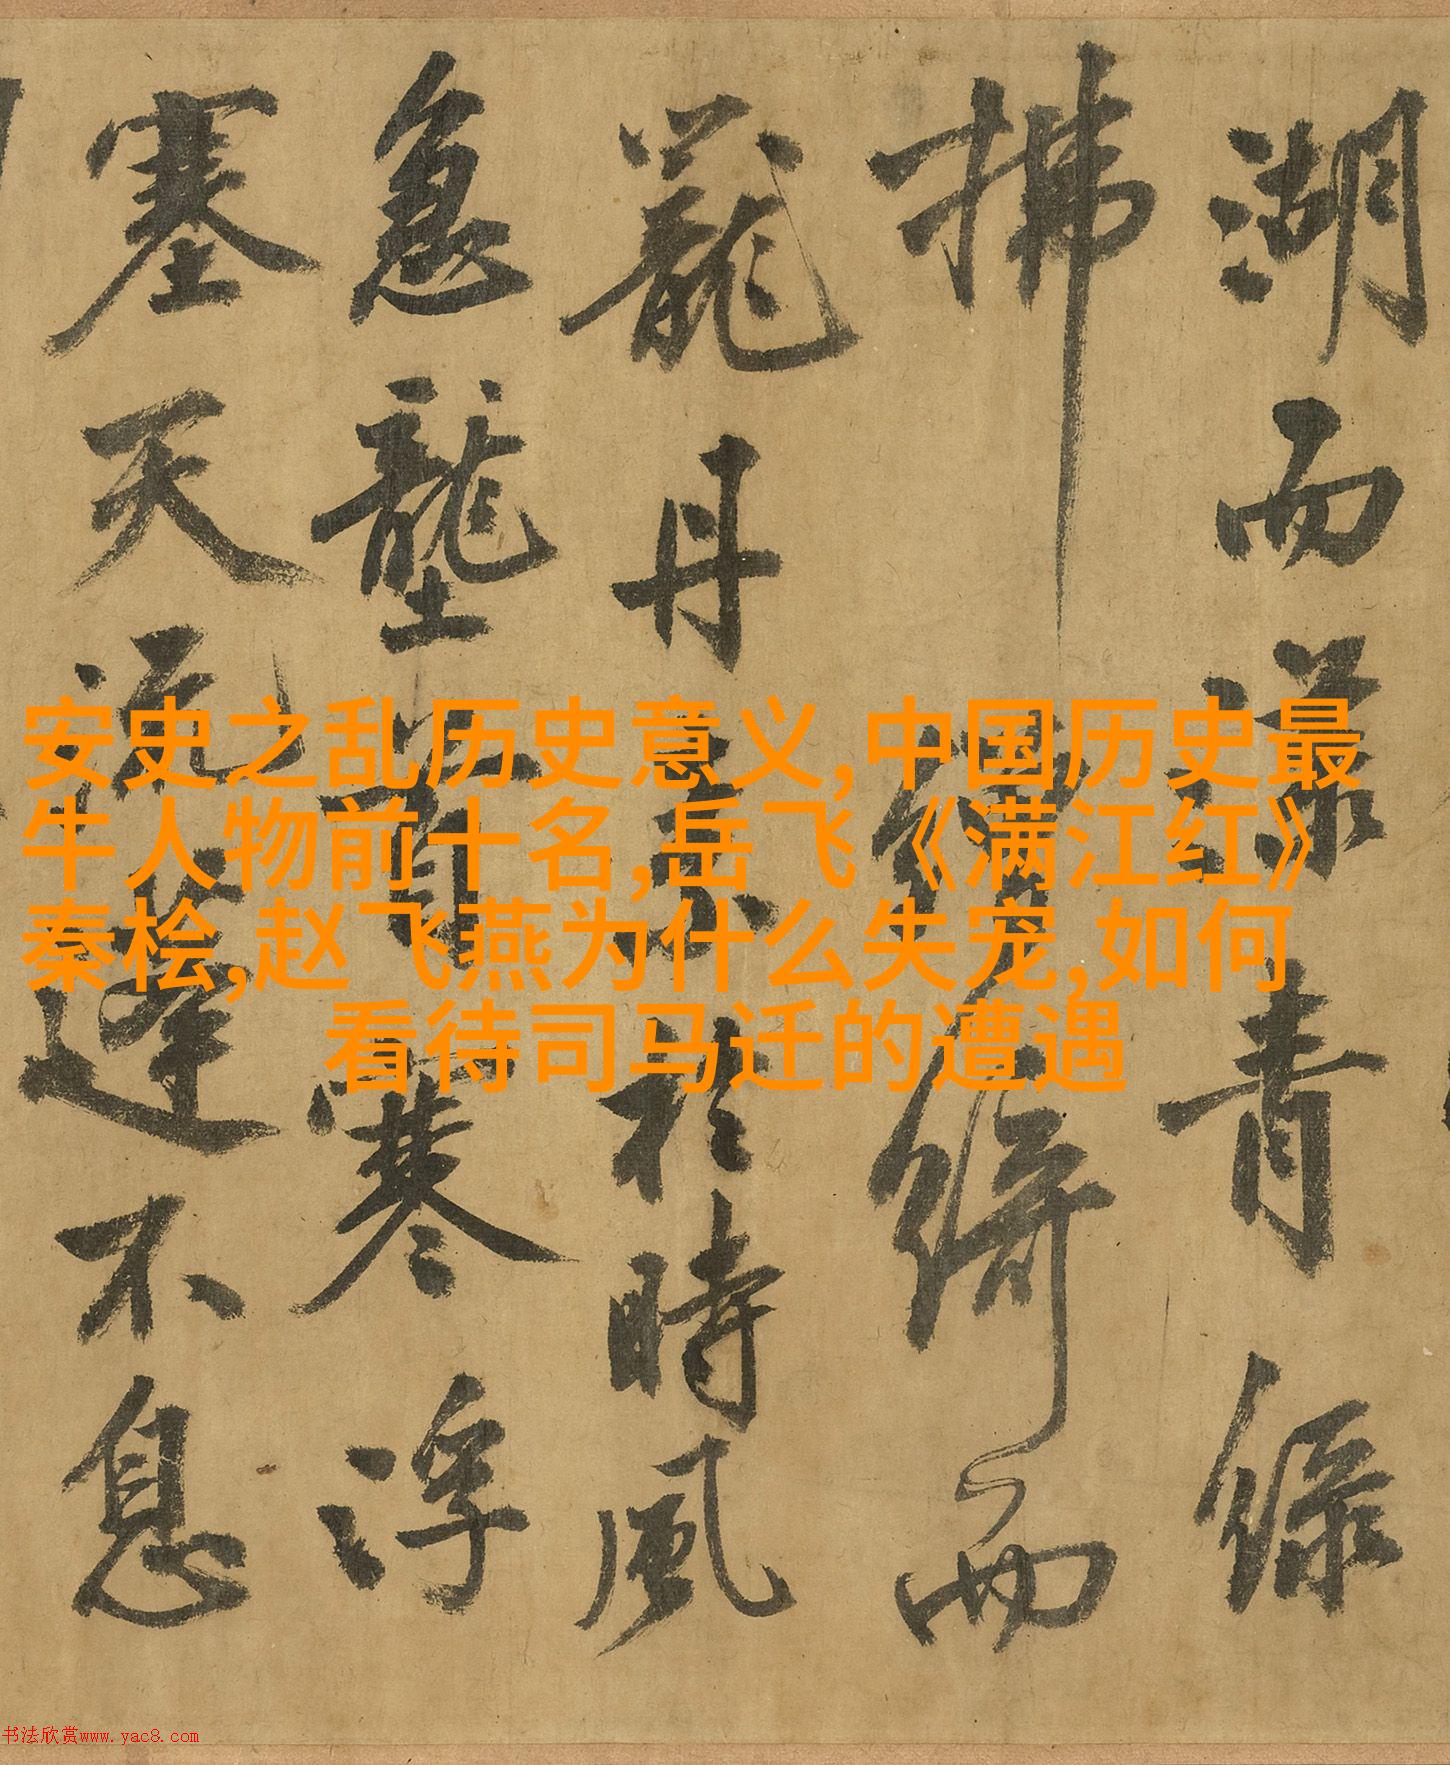 湖而漾青綠
拂綺而
丹素於時風
急壟首寒浮
塞天流蓬不息
安史之乱历史意义,中国历史最
牛人物前十名,岳飞《满江红》
秦桧,赵飞燕为什么失宠,如何
看待司马迁的遭遇
书法欣赏www.yac8.com